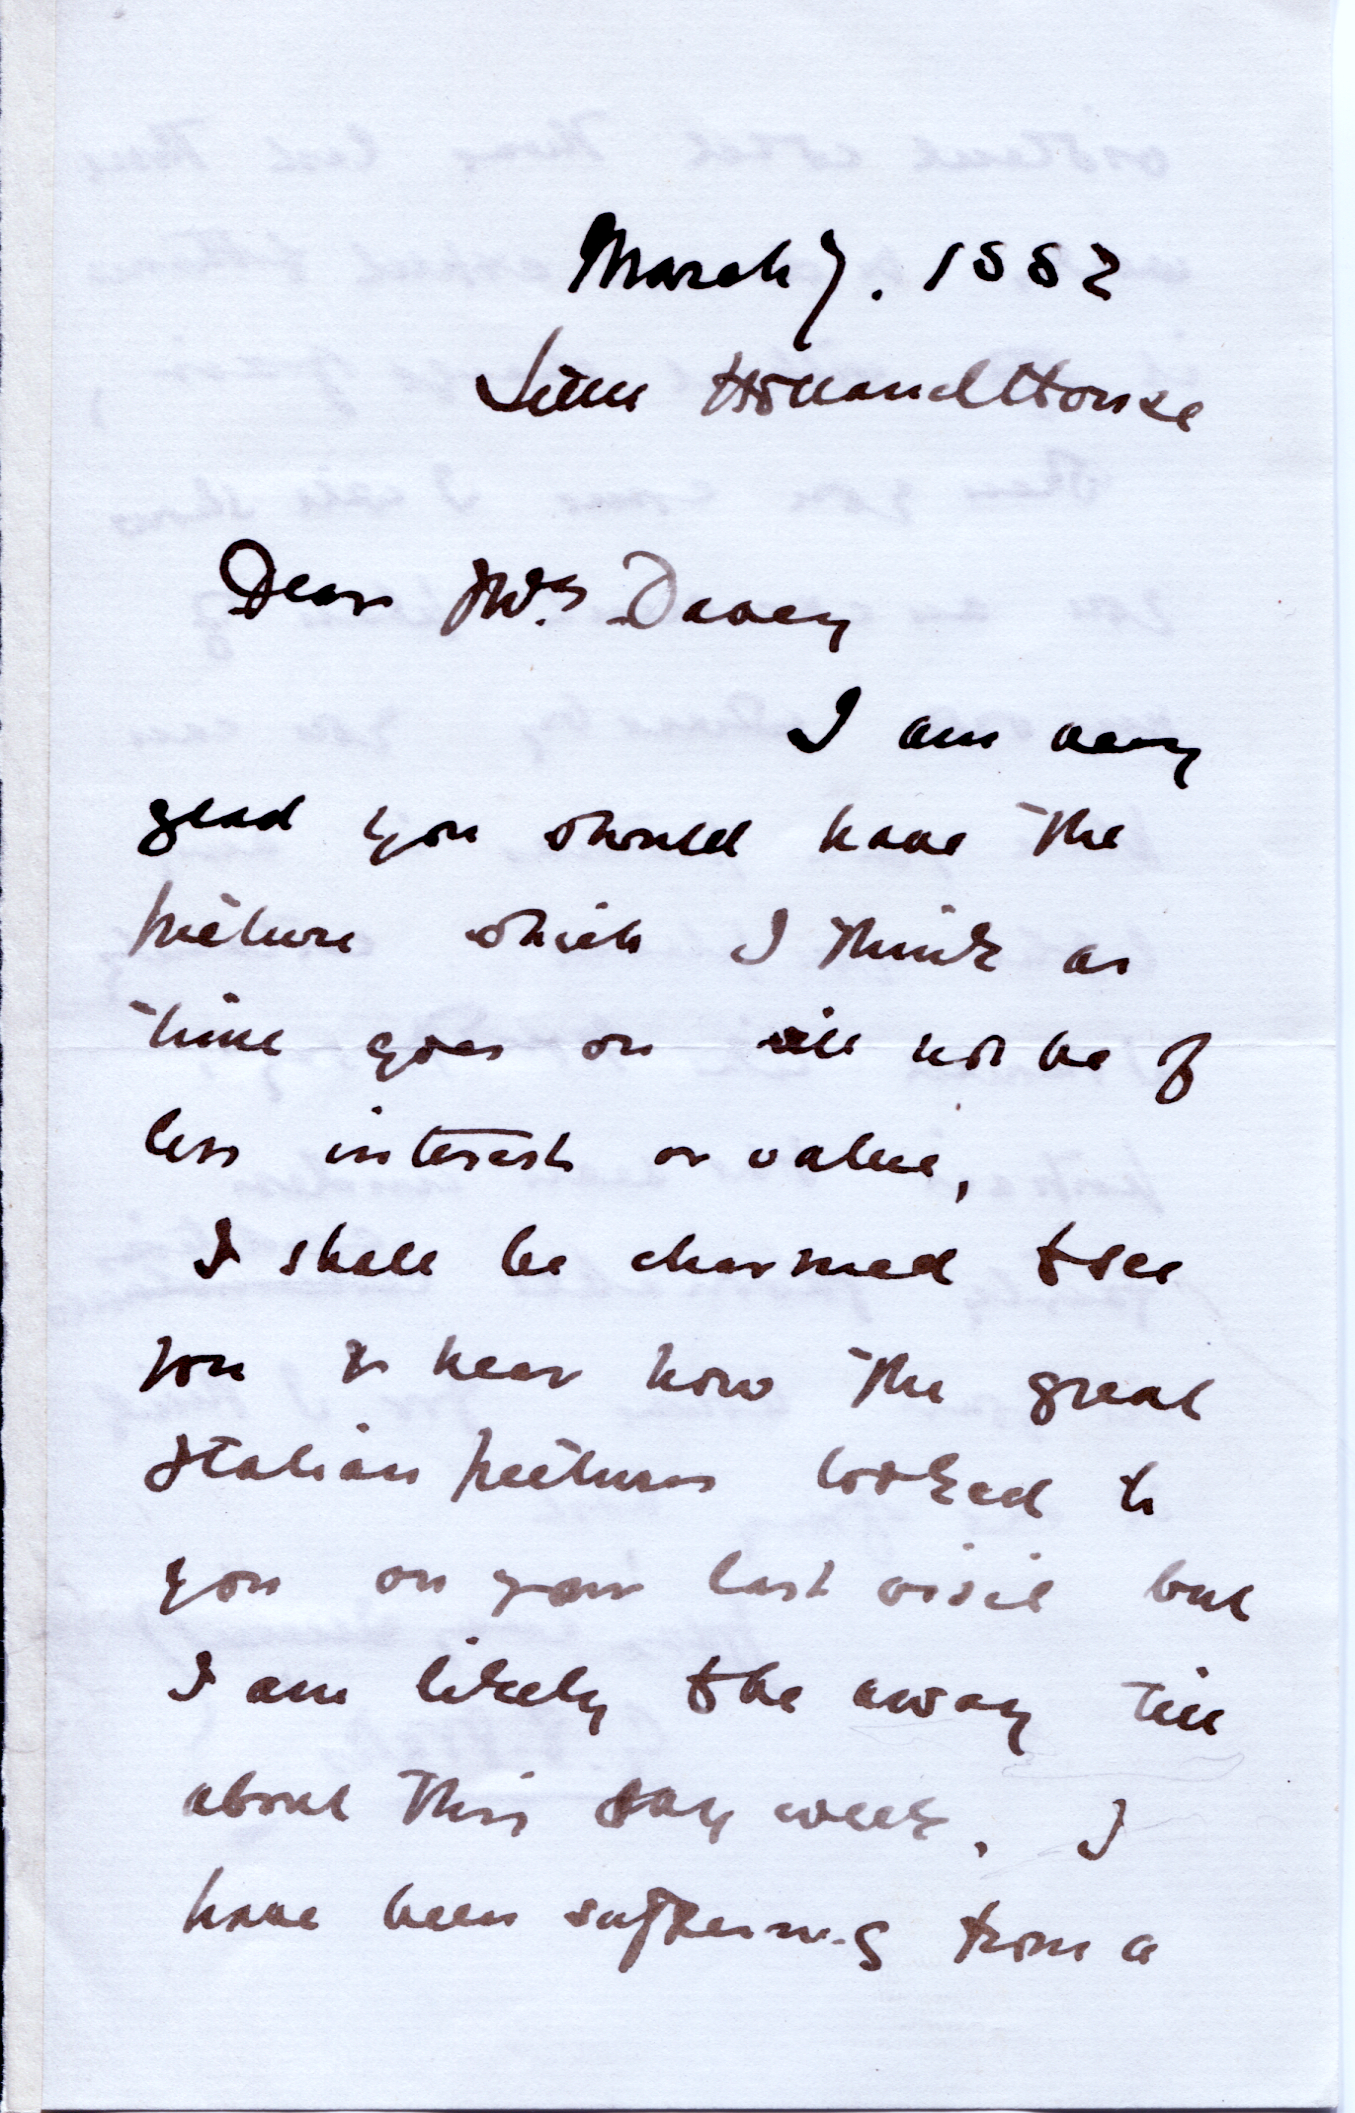 March 7. 1882
Little Holland House
Dear Mrs. Davey
I am very
glad you should have the
picture which I think as
time goes on will not be of
less interest or value,
I shall be charmed to see
you & hear how the great
Italian pictures looked to
you on your last visit but
I am likely to be away till
about this day week. I
have been suffering from a